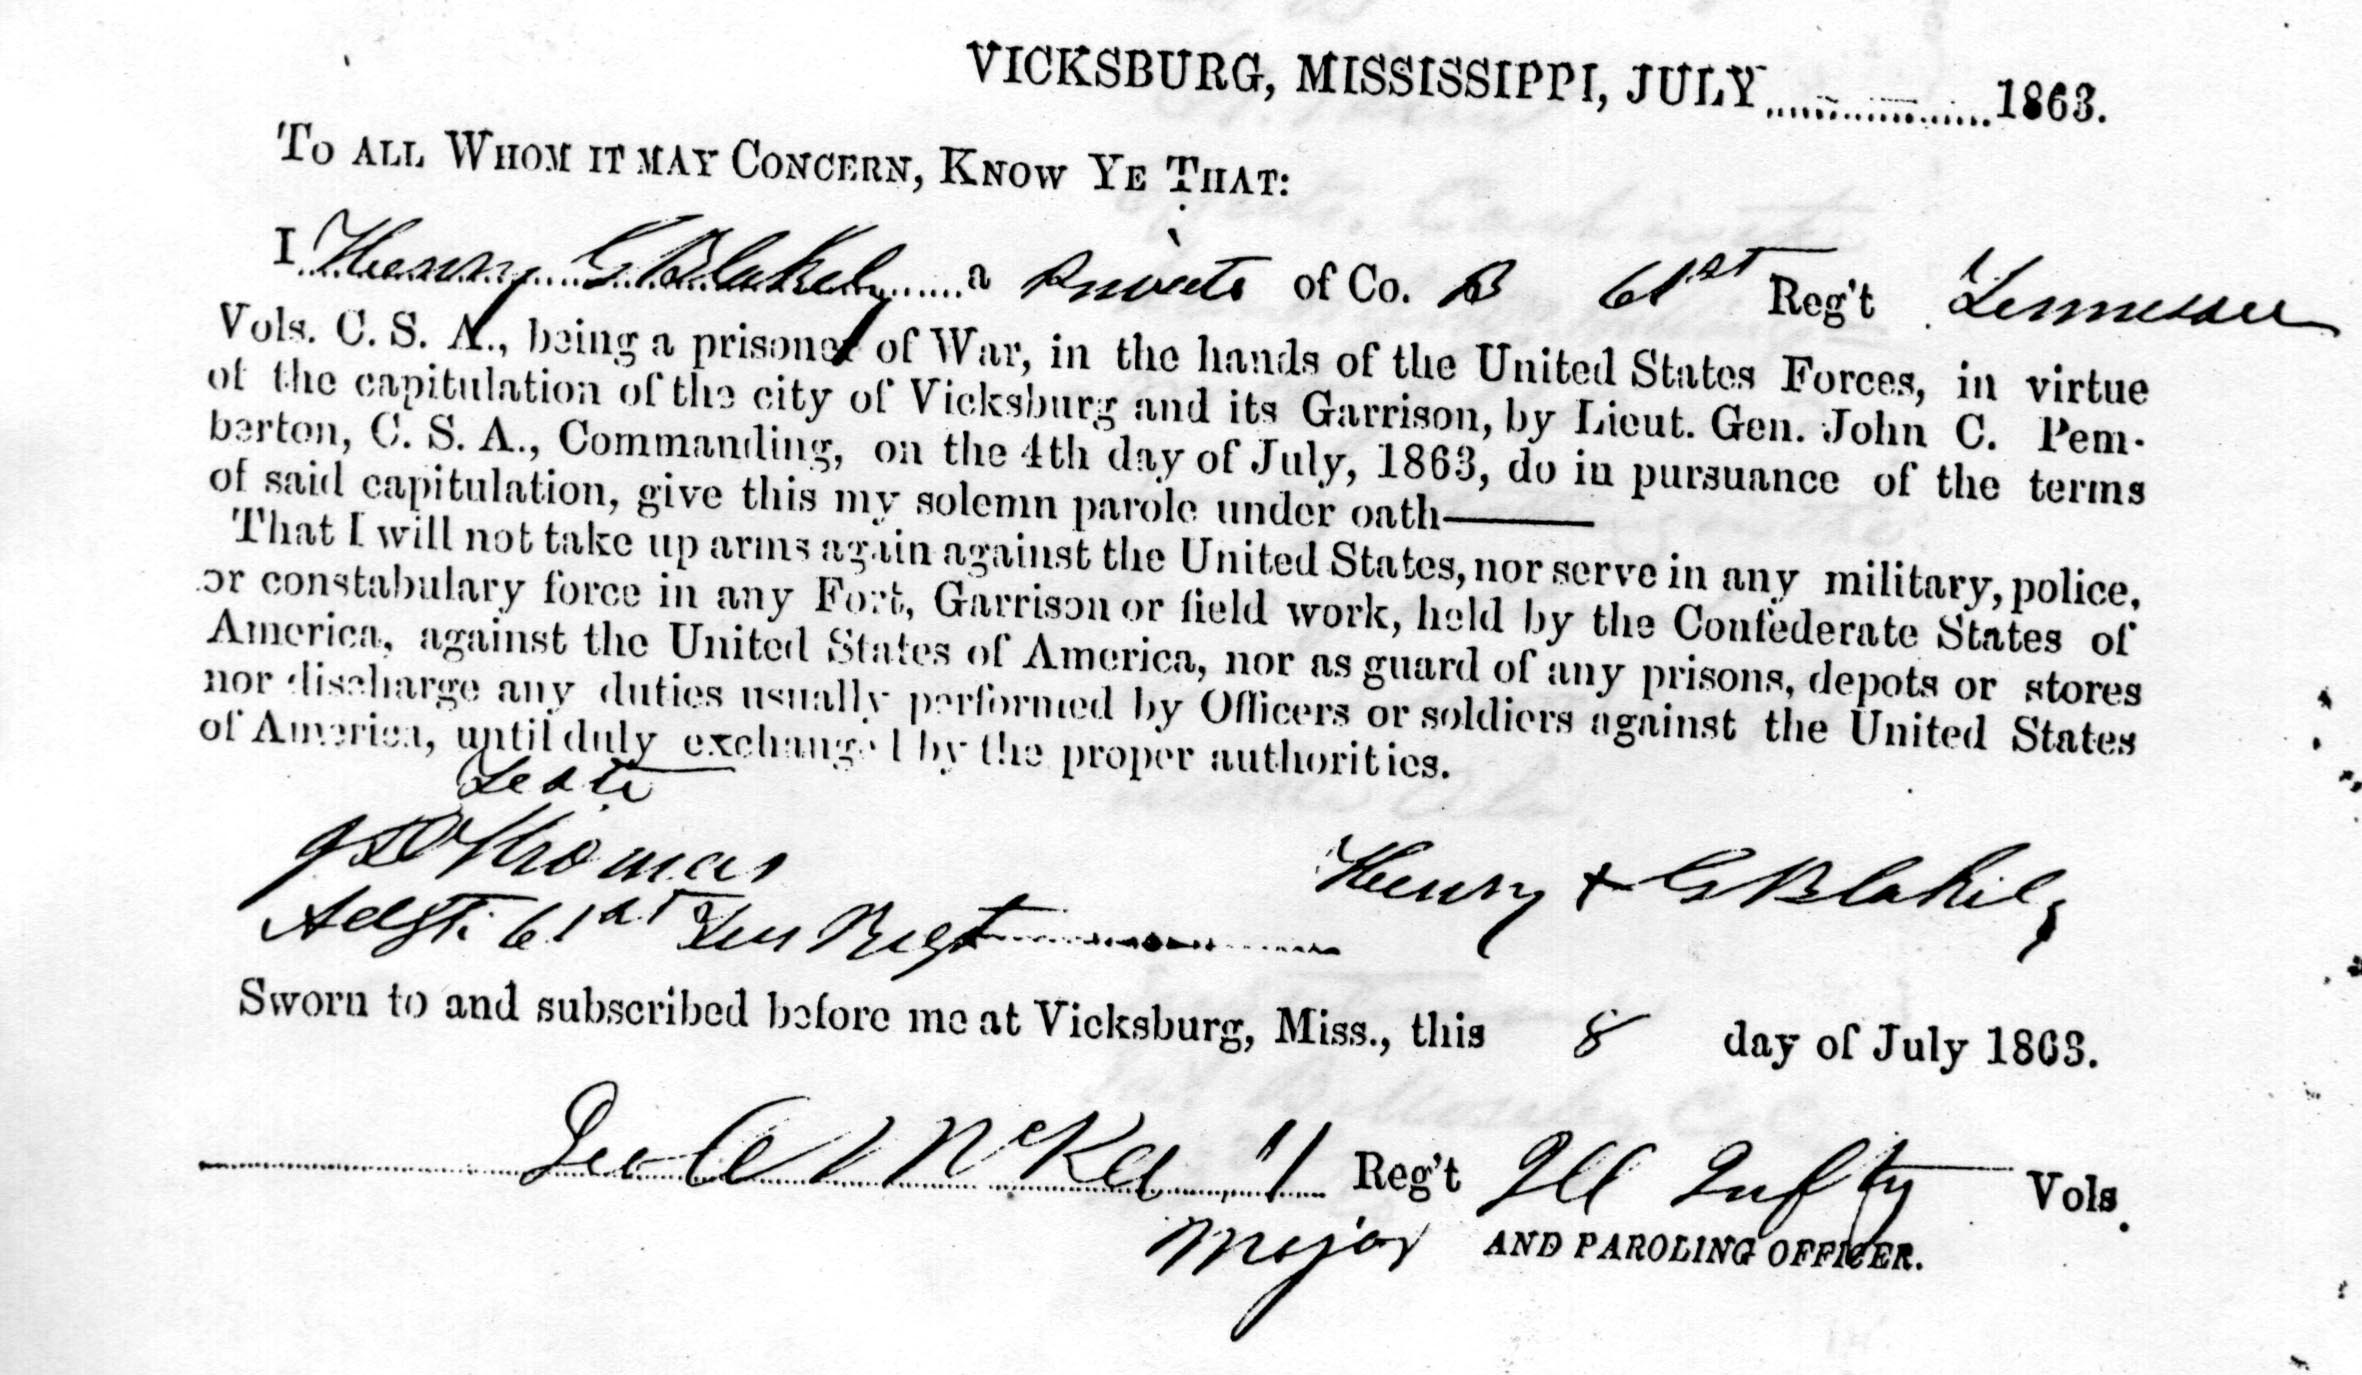 VICKSBURG, MISSISSIPPI, JULY 1863.
TO ALL WHOM IT MAY CONCERN, KNOW YE THAT:
I Henry G Blakely a Private of Co. B 61st Reg't Tennessee
Vols. C. S. A., being a prisoner of War, in the hands of the United States Forces, in virtue
of the capitulation of the city of Vicksburg and its Garrison, by Lieut. Gen. John C. Pem-
berton, C. S. A., Commanding, on the 4th day of July, 1863, do in pursuance of the terms
of said capitulation, give this my solemn parole under oath———
That I will not take up arms again against the United States, nor serve in any military, police,
or constabulary force in any Fort, Garrison or field work, held by the Confederate States of
America, against the United States of America, nor as guard of any prisons, depots or stores
nor discharge any duties usually performed by Officers or soldiers against the United States
of America, until duly exchanged by the proper authorities.
Teste
Thomas
Adgt. 61st Ten Regt
Henry + G Blakely
Sworn to and subscribed before me at Vicksburg, Miss., this 8 day of July 1863.
McKee 11 Reg't Ill Infty Vols.
Major AND PAROLING OFFICER.